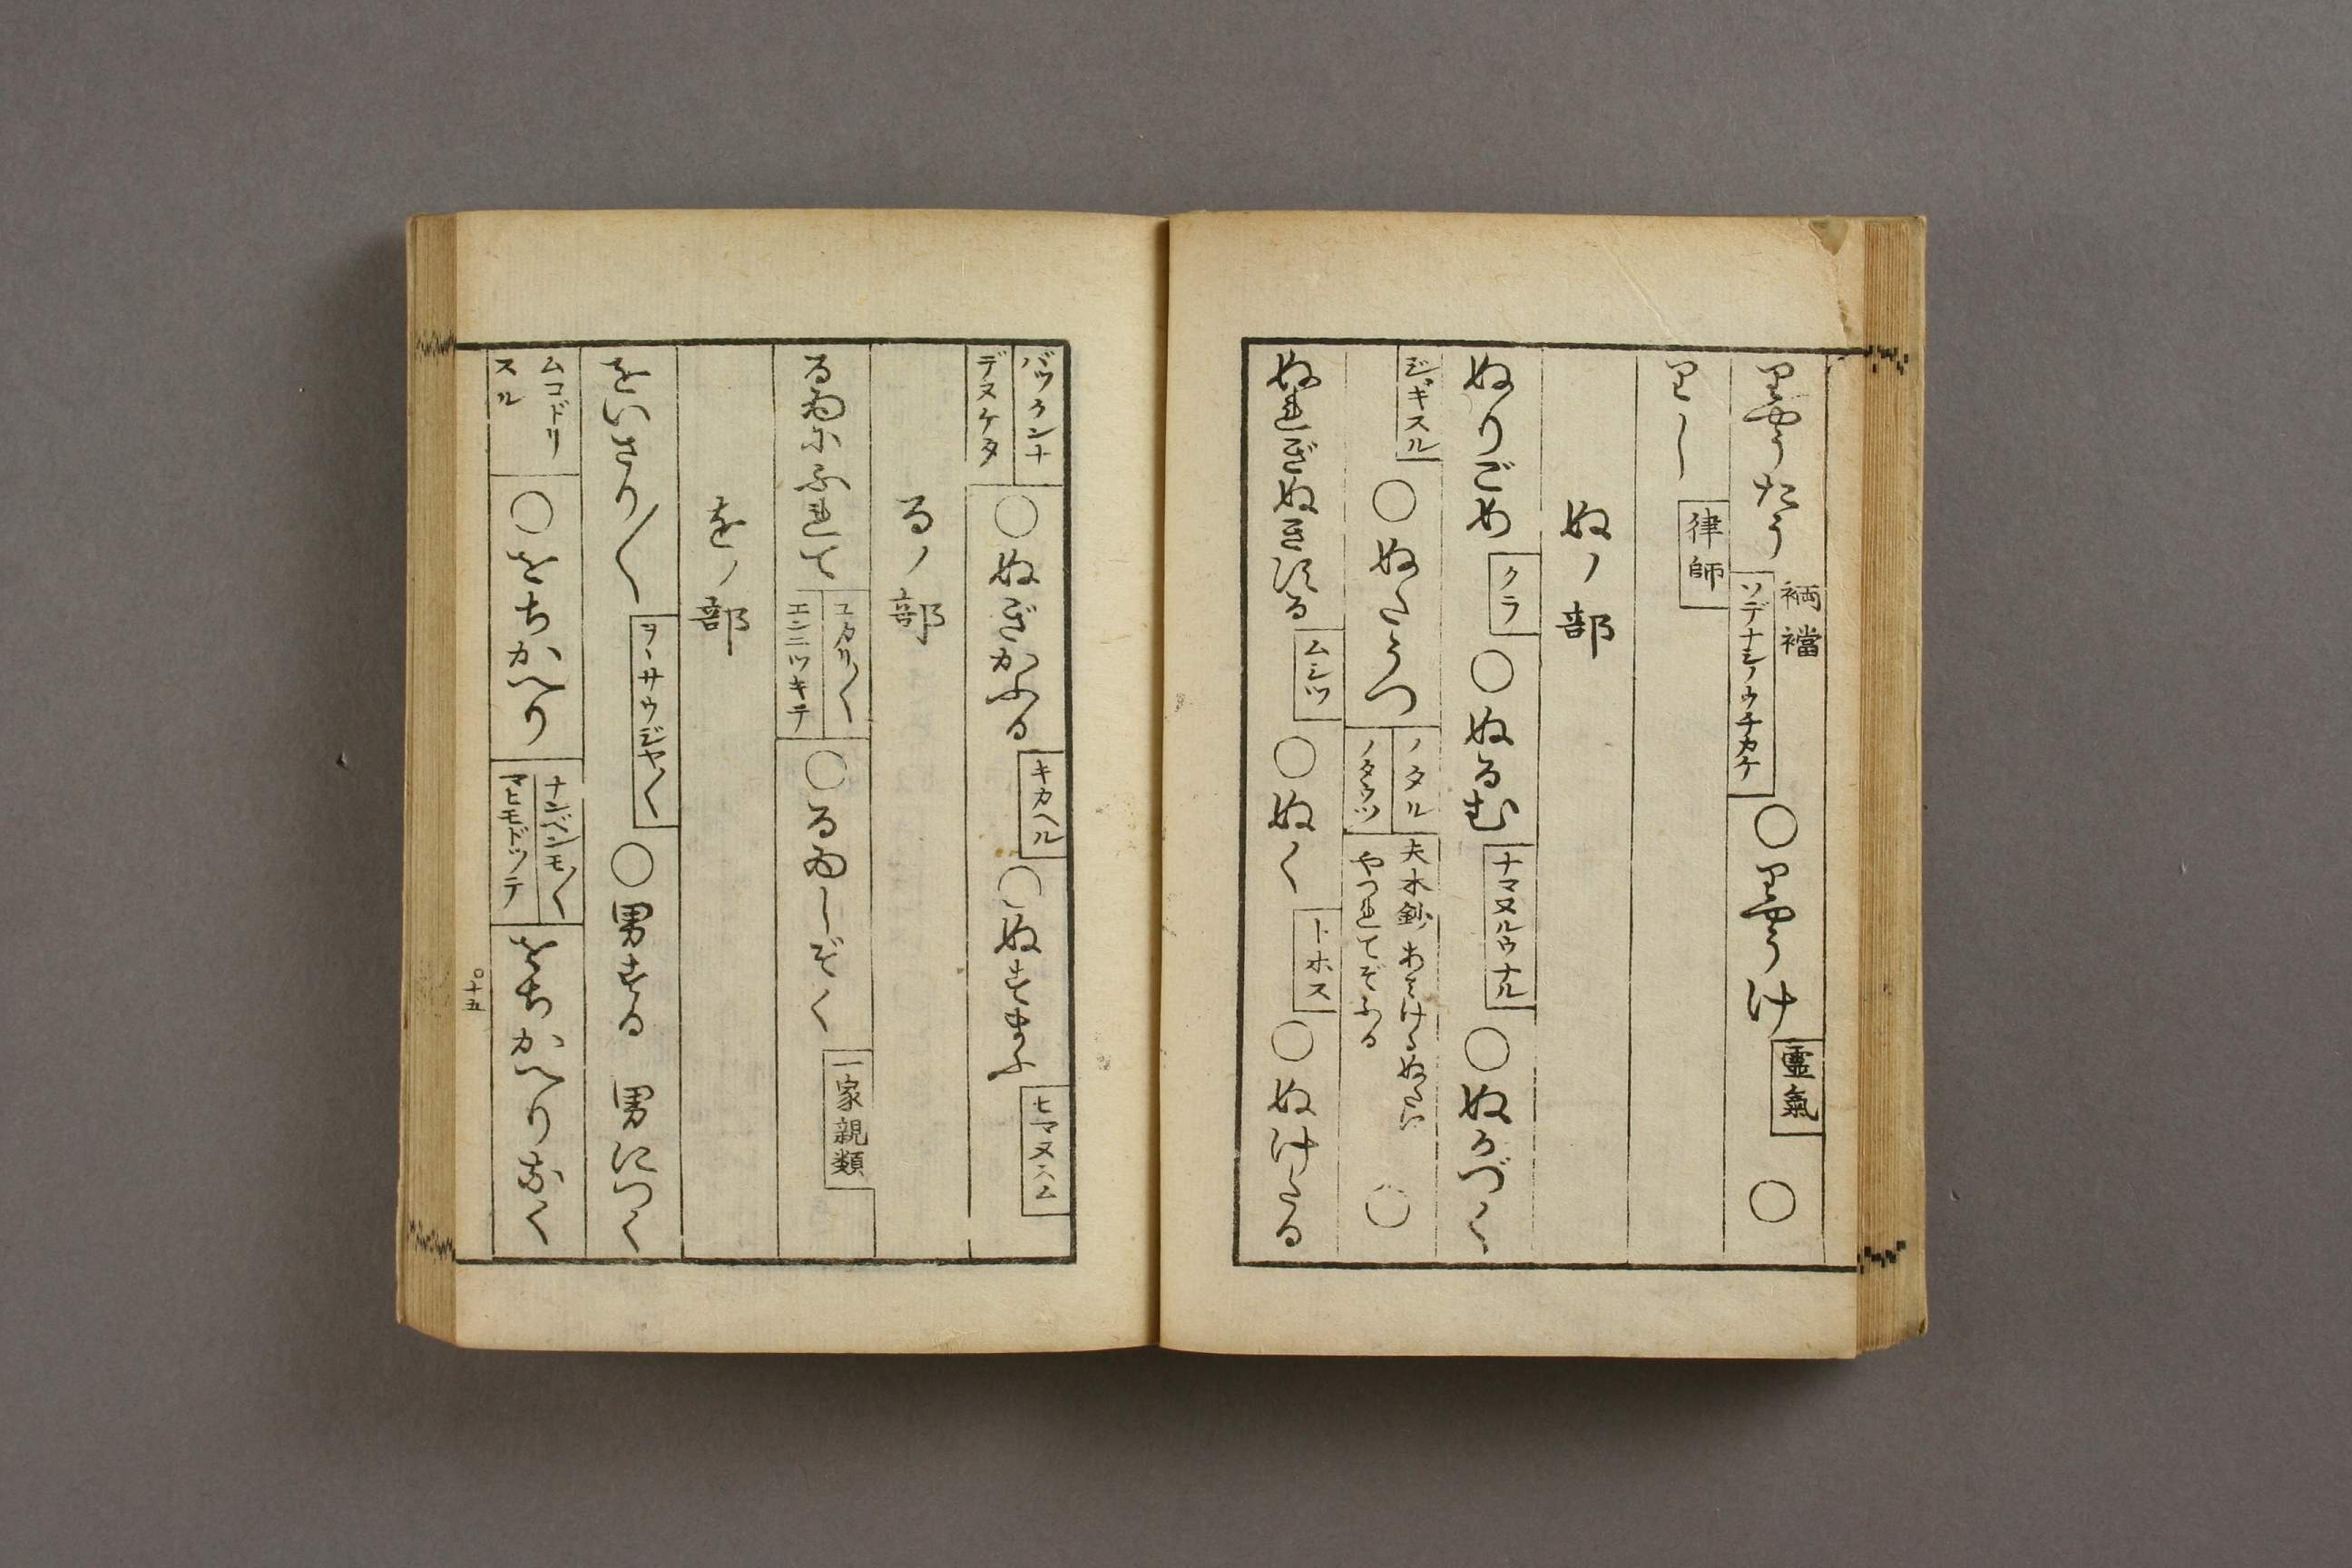 りやうたう 裲襠 ソデナシノウチカケ ○りやうけ 靈氣 ○
りし 律師
ぬノ部
ぬりごめ クラ ○ぬるむ ナマヌルウナル ○ぬかづく
ジギスル ○ぬたうつ ノタル ノタウツ 夫木鈔 やつれてぞふる ○
ぬれぎぬきする ムシツ ○ぬく トホス ○ぬけたる
バツクンナ デヌケタ ○ぬぎかふる キカヘル ○ぬすまふ ヒマヌスム
るノ部
るゐにふれて ユカリ〳〵 エンニツキテ ○るゐしぞく 一家親類
をノ部
をいさり〳〵 ヲヽサウジヤ〳〵 ○男する 男につく
ムコドリ スル ○をちかへり ナンベンモ〳〵 マヒモドツテ をちかへりなく
○十五